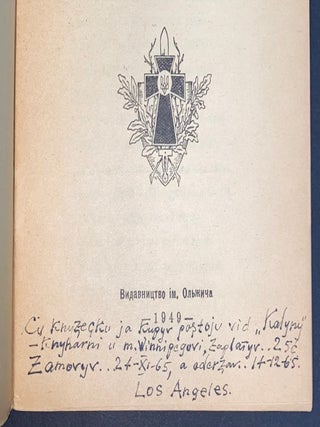 Видавництво ім. Ольжича
—1949—
Cu knyžečku ja kupyv poštoju vid „Kalyny"
-knyharni u m. Winnipegovi, zaplatyv.. 2.50
Zamovyv.. 24-XI-65, a oderžav. 14-12-65.
Los Angeles.